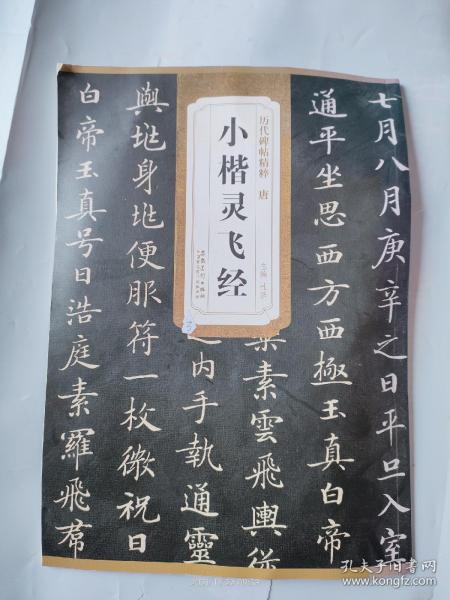 七月八月庚辛之日平旦入室
通平坐思西方西極玉真白帝
素雲飛輿從
之内手執通靈
與地身地便服符一枚微祝曰
白帝玉真号曰浩庭素羅飛帬
历代碑帖精粹 唐
小楷灵飞经
主编
3
孔夫子旧书网
www.kongfz.com